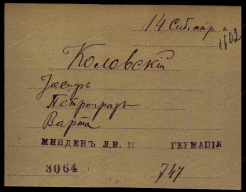 14 Сиб. стр.
1602
Коловский
Іосифъ
Петроградъ
Варта
МИНДЕНЪ Л.В. II ГЕРМАНІЯ
3064 747